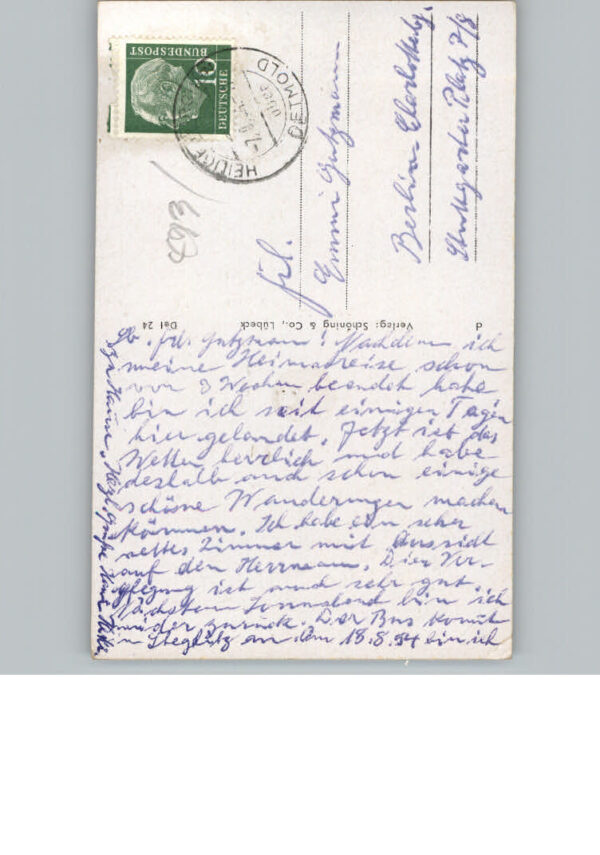 DEUTSCHE
BUNDESPOST
10
DETMOLD
über
893/
Frl.
Emmi Gutzmann
Berlin-Charlottenbg.
Stuttgarter Platz
Verlag: Schöning & Co., Lübeck
Det 24
d
Lb. Frl. Gutzmann! Nachdem ich
meine Heimatreise schon
vor 3 Wochen beendet habe
bin ich seit einigen Tagen
hier gelandet. Jetzt ist das
Wetter herrlich und habe
deshalb auch schon einige
schöne Wanderungen machen
können. Ich habe ein sehr
nettes Zimmer mit Aussicht
auf den Herrmann. Die Ver-
pflegung ist auch sehr gut.
Nächsten Sonnabend bin ich
wieder zurück. Der Bus kommt
in Steglitz an. Am 18.8.54 bin ich
zu Hause. Herzl. Grüße